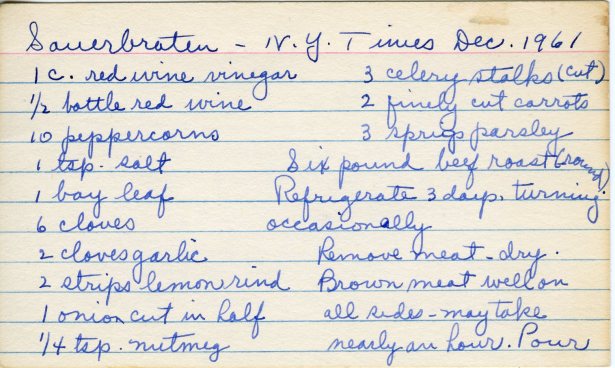 Sauerbraten - N.Y. Times Dec. 1961
1 c. red wine vinegar
1/2 bottle red wine
10 peppercorns
1 tsp. salt
1 bay leaf
6 cloves
2 cloves garlic
2 strips lemon rind
1 onion cut in half
1/4 tsp. nutmeg
3 celery stalks (cut)
2 finely cut carrots
3 sprigs parsley
Six pound beef roast (round)
Refrigerate 3 days. turning
occasionally
Remove meat - dry.
Brown meat well on
all sides - may take
nearly an hour. Pour